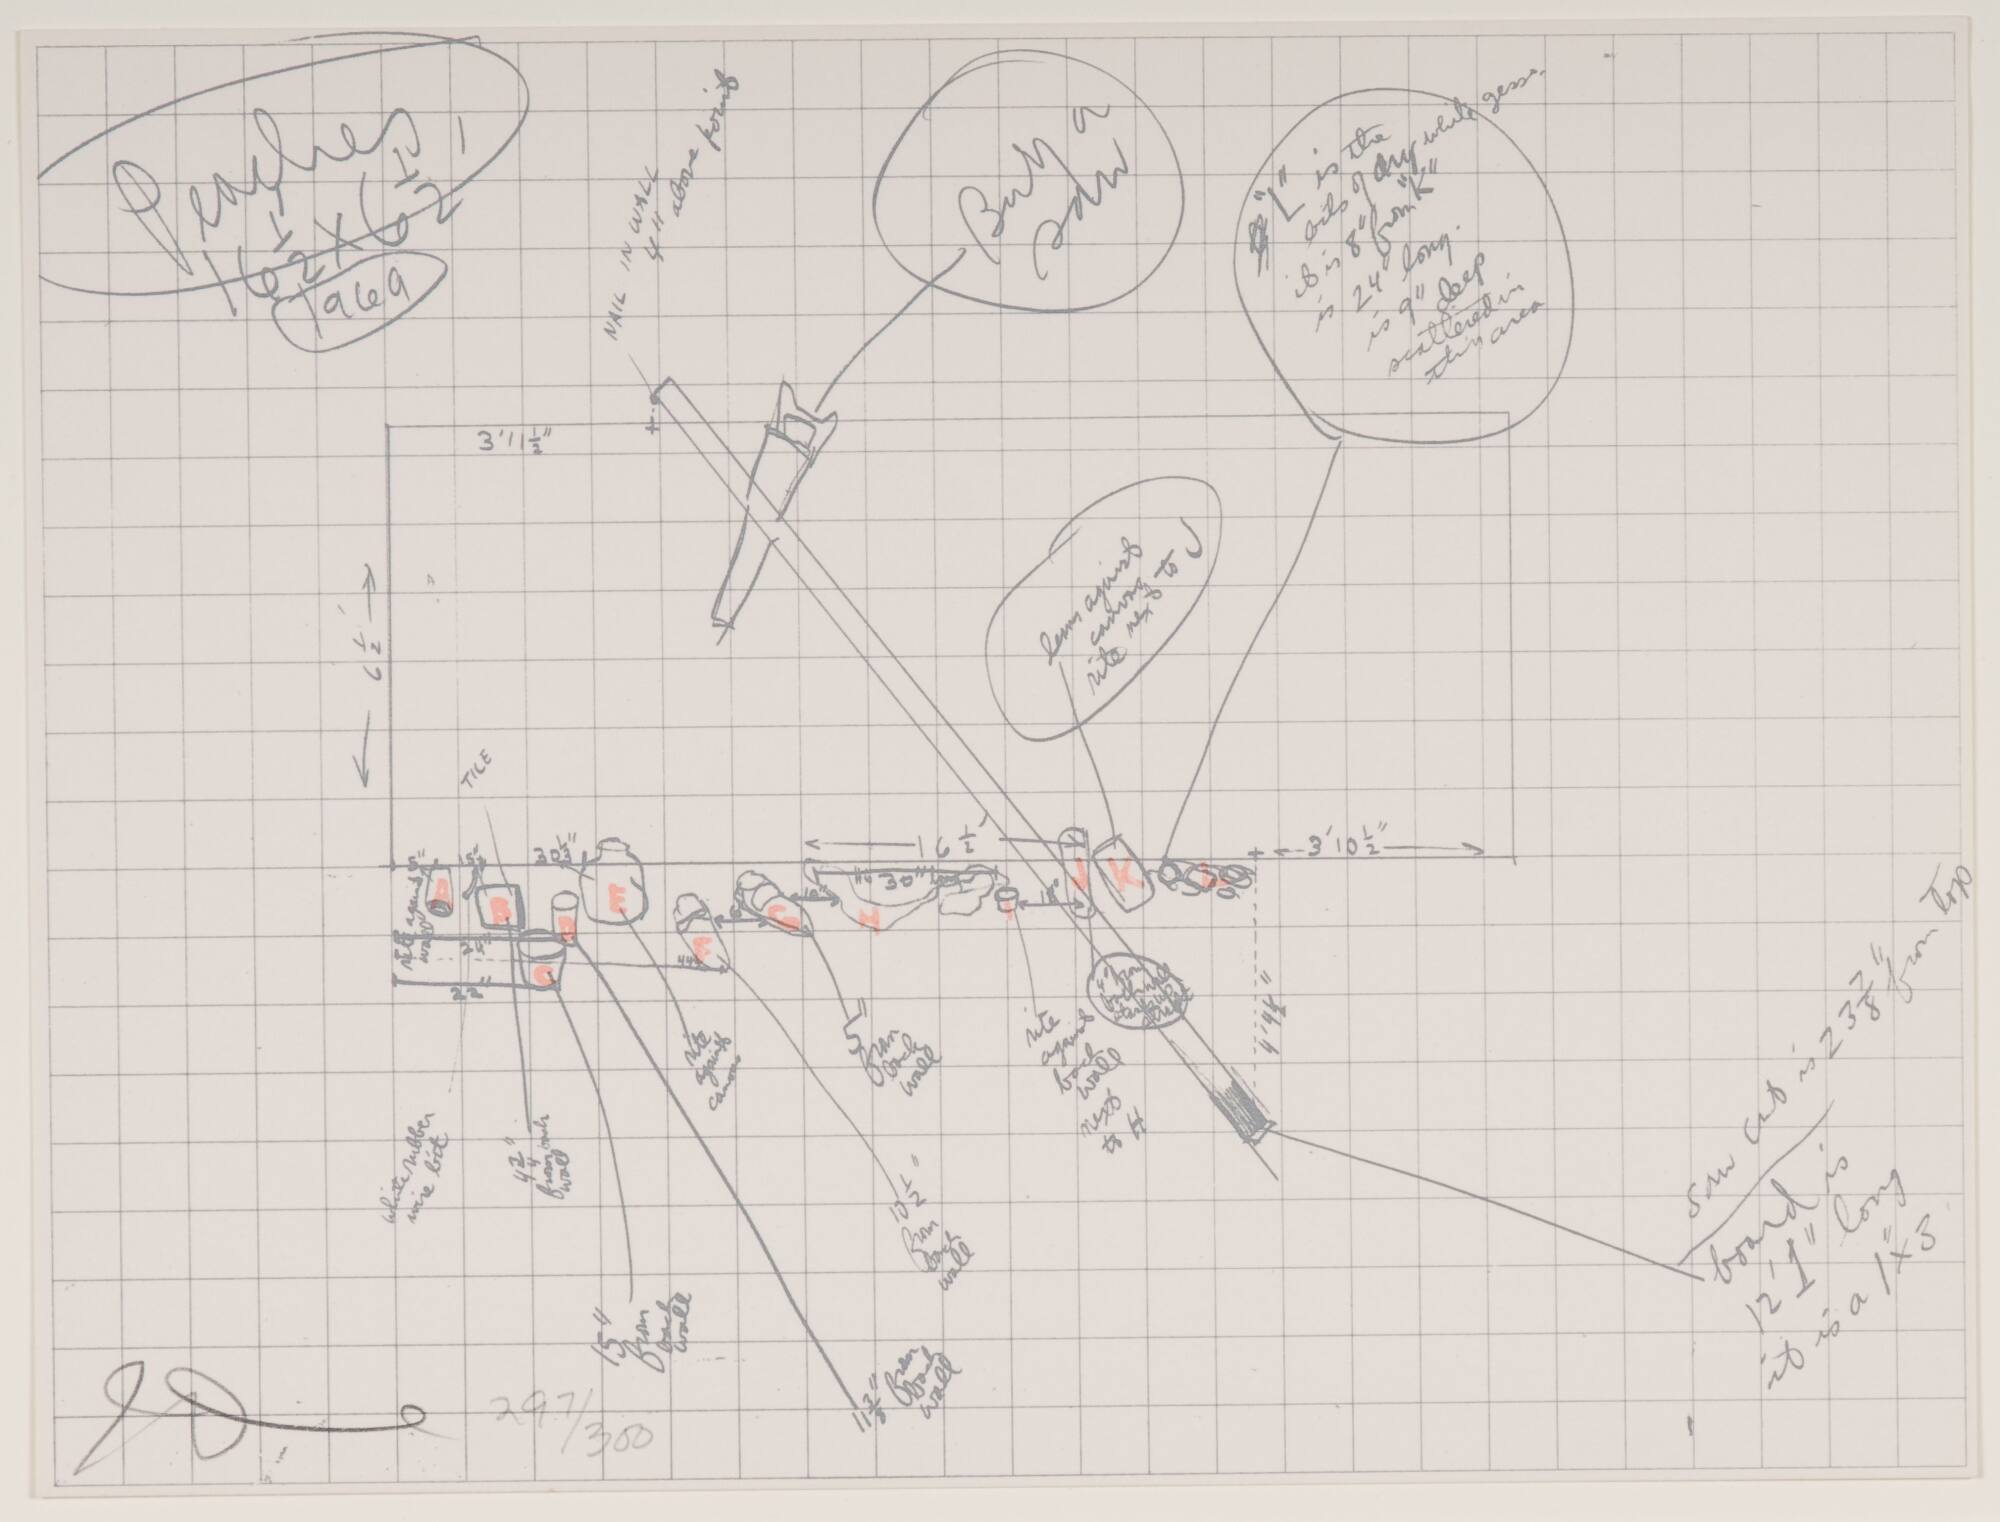 Peaches
16 1/2 X 6 1/2'
1969
NAIL IN WALL
4" above point
Buy a
saw
"L" is the
bits of dry white gesso.
it is 8" from "K"
is 24" long.
is 9" deep
scattered in
this area
3'11 1/2"
6 1/2'
lean against
canvas
rite next to J
TILE
1 6 1/2'
3'10 1/2"
30 1/2"
30"
J
K
I
18"
22"
4'4 1/2"
rite against
wall
white rubber
wire bit
from back
wall
rite
against
canvas
5"
from
back
wall
rite
against
back
wall
next
to H
10 1/2"
from
back
wall
15"
from
back
wall
from
back
wall
saw cut is 23 7/8" from top
board is
12'1" long
it is a 1"x3
297/300